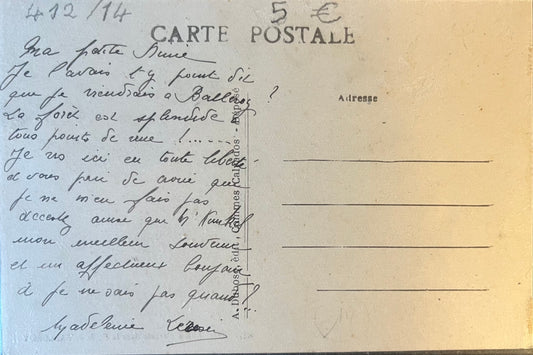 412/14
5 €
CARTE POSTALE
Ma petite Amie
Je l'avais t'y point dit
que je viendrais à Balleroy ?
La forêt est splendide
tous points de vue ! .....
Je vis ici en toute liberté
et vous prie de croire que
je ne m'en fais pas
acceptez ainsi que
mon meilleur souvenir
et un affectueux bonjour
à je ne sais pas quand ?
Madeleine
Adresse
A. Dubosq, édit., Cormes Calvados - Déposé